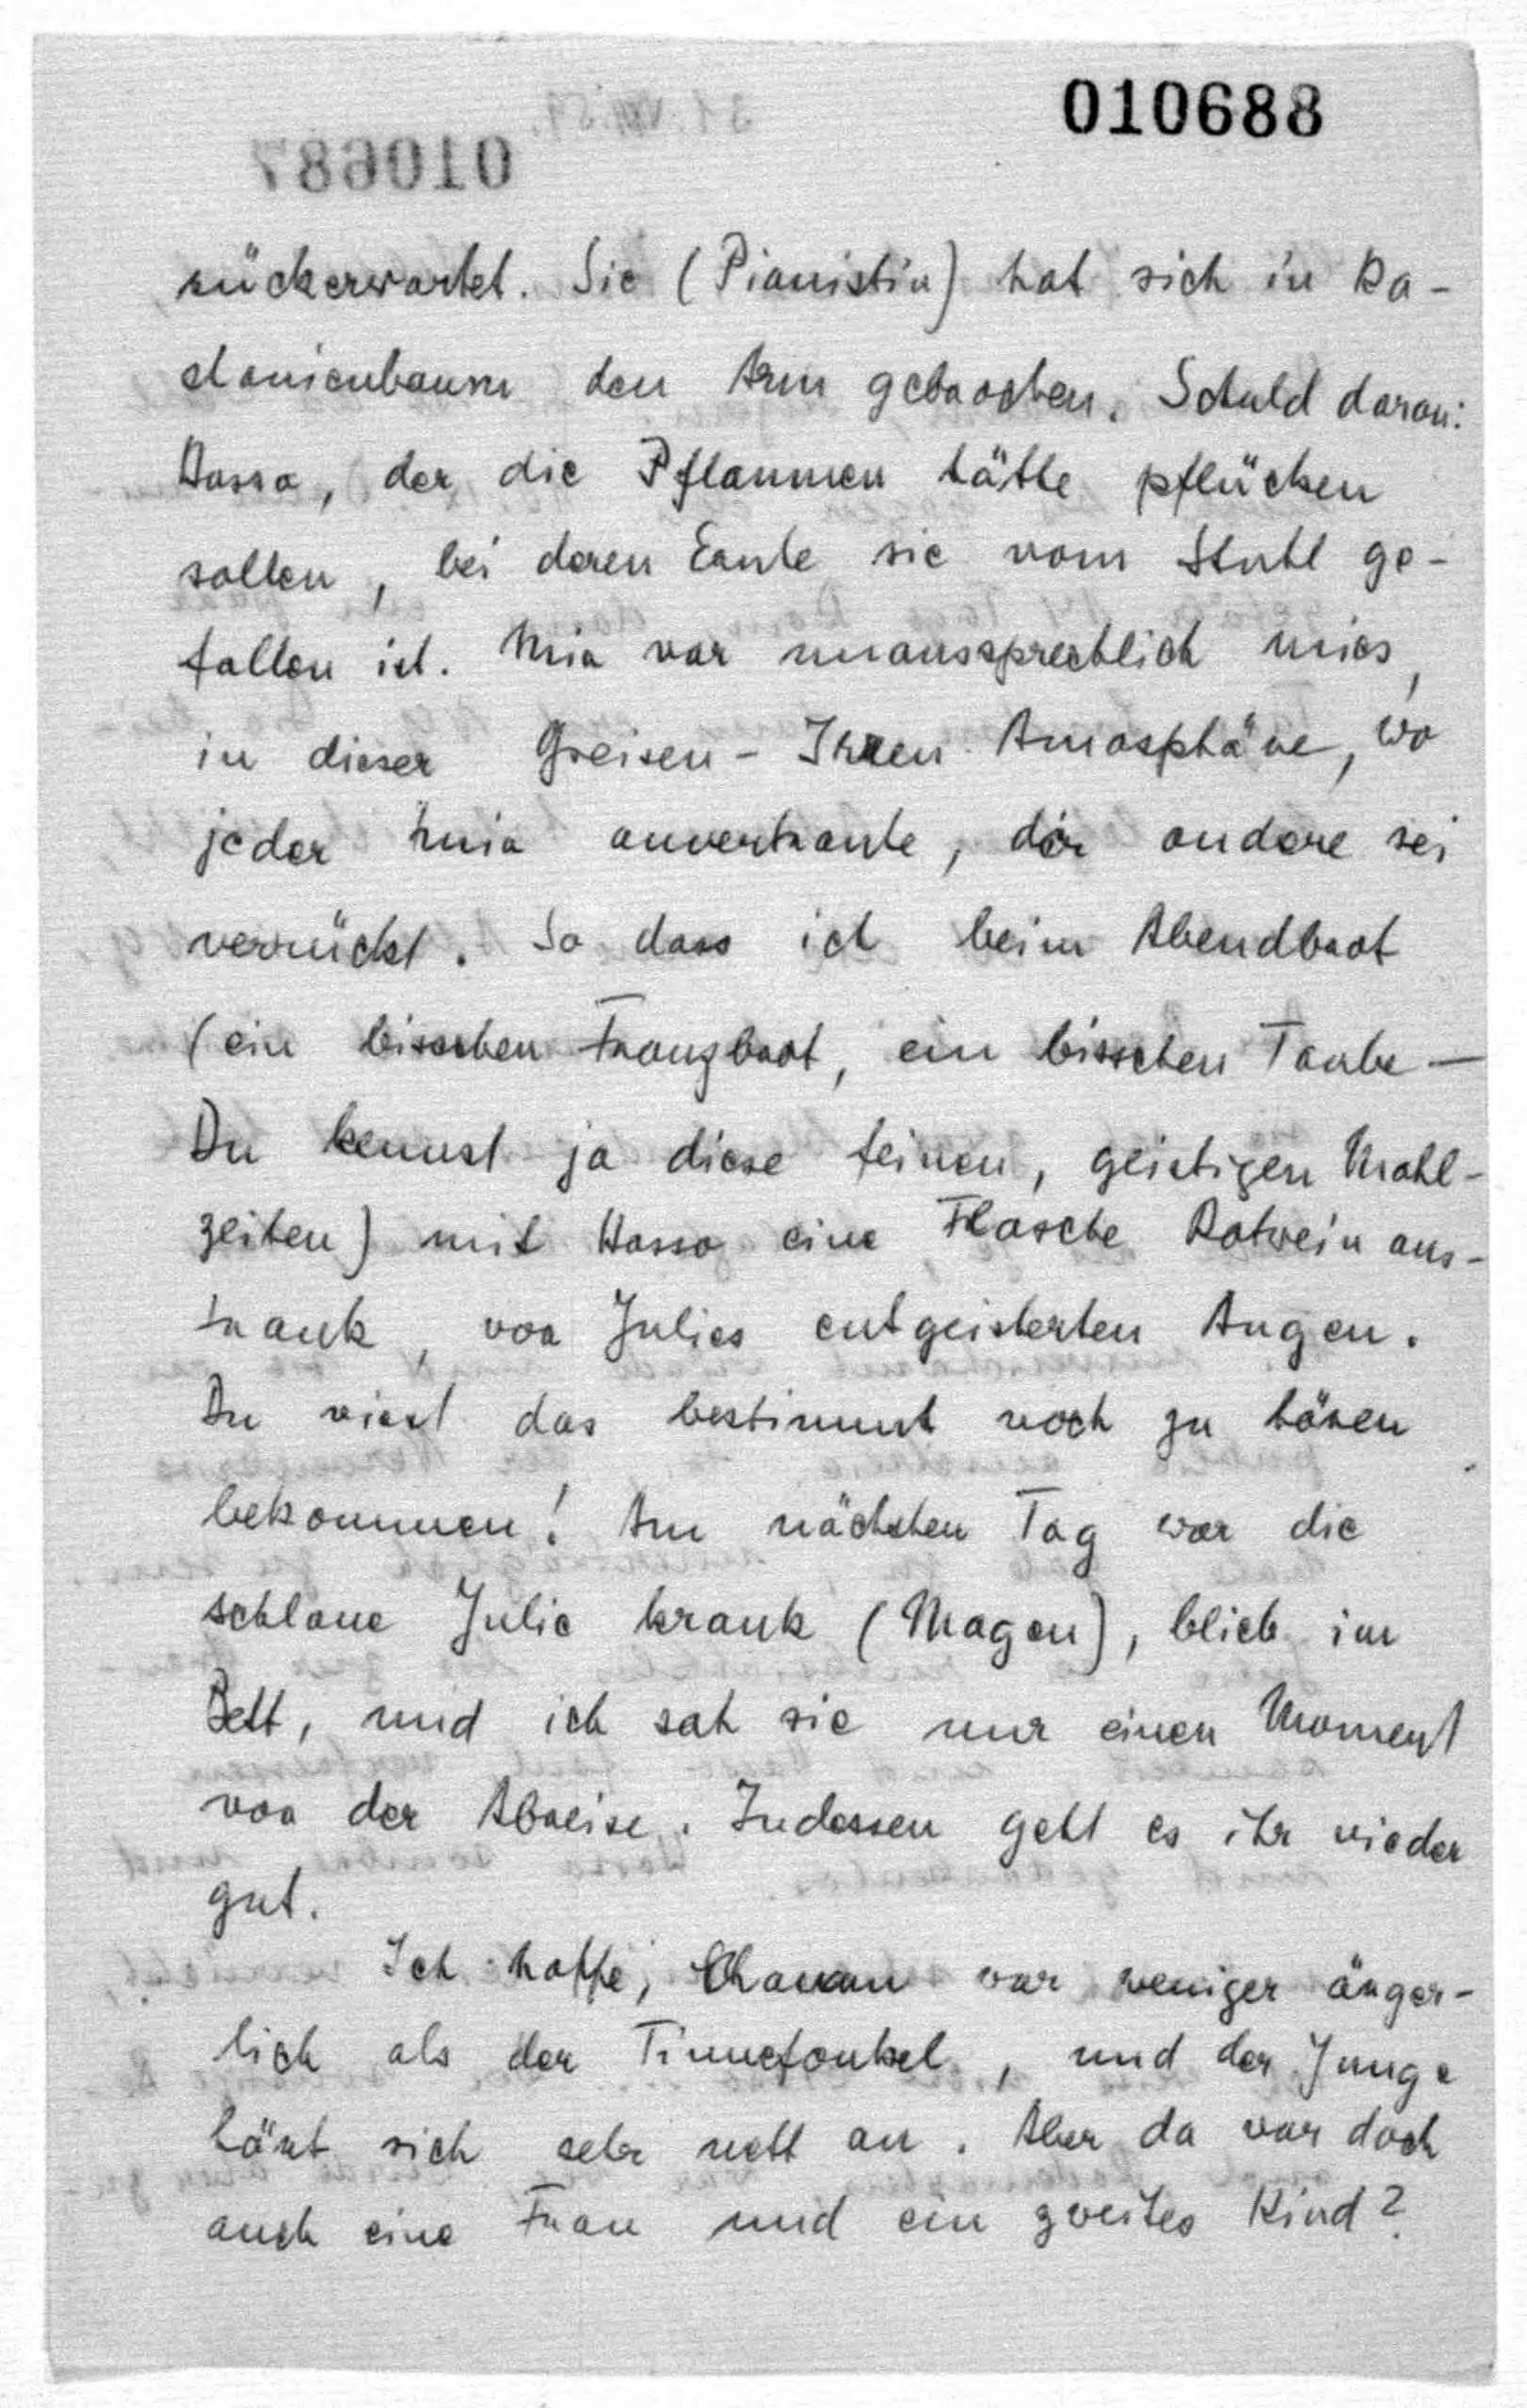 010688
010687
rückerwartet. Sie (Pianistin) hat sich in Ka-
stanienbaum den Arm gebrochen. Schuld daran:
Hasso, der die Pflaumen hätte pflücken
sollen, bei deren Ernte sie vom Stuhl ge-
fallen ist. Mir war unaussprechlich mies,
in dieser Greisen-Irren Atmosphäre, wo
jeder mir anvertraute, der andere sei
verrückt. So dass ich beim Abendbrot
(ein bisschen Franzbrot, ein bisschen Taube —
Du kennst ja diese feinen, geistigen Mahl-
zeiten) mit Hasso eine Flasche Rotwein aus-
trank, vor Julies entgeisterten Augen.
Du wirst das bestimmt noch zu hören
bekommen! Am nächsten Tag war die
schlaue Julie krank (Magen), blieb im
Bett, und ich sah sie nur einen Moment
vor der Abreise. Indessen geht es ihr wieder
gut.
Ich hoffe, war weniger ärger-
lich als der Tinnefonkel, und der Junge
hört sich sehr nett an. Aber da war doch
auch eine Frau und ein zweites Kind?